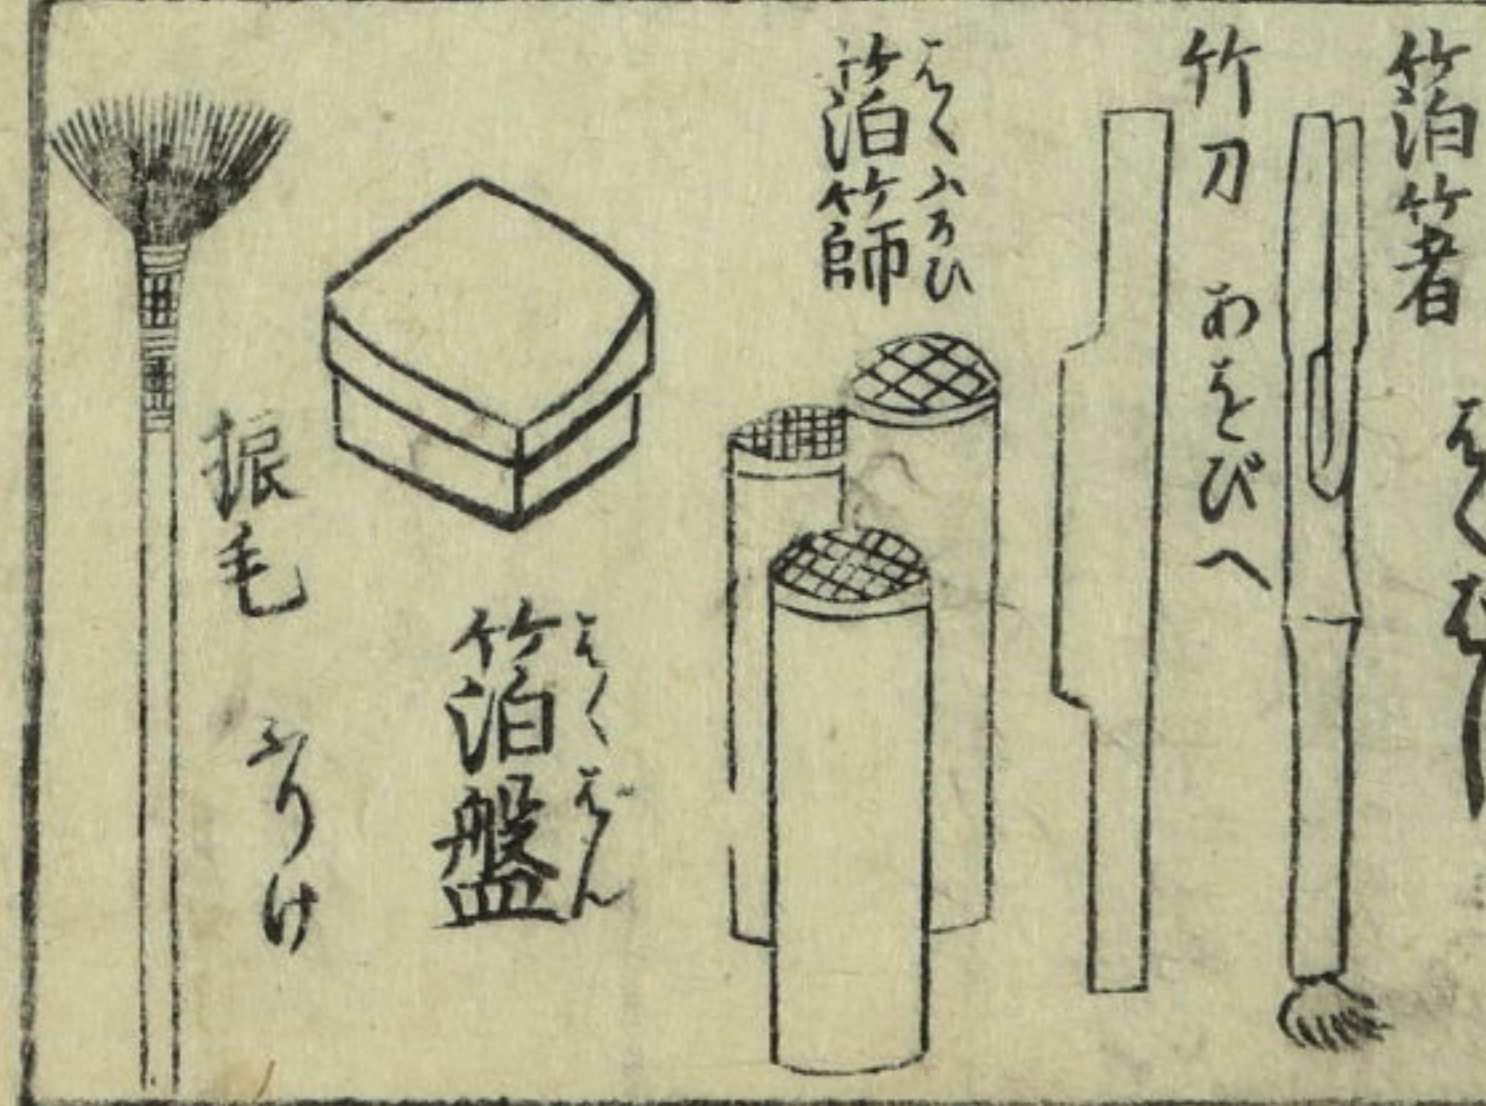 箔箸 はくばし
竹刀 あをびへ
箔篩 はくふるひ
箔盤 はくばん
振毛 ふりけ